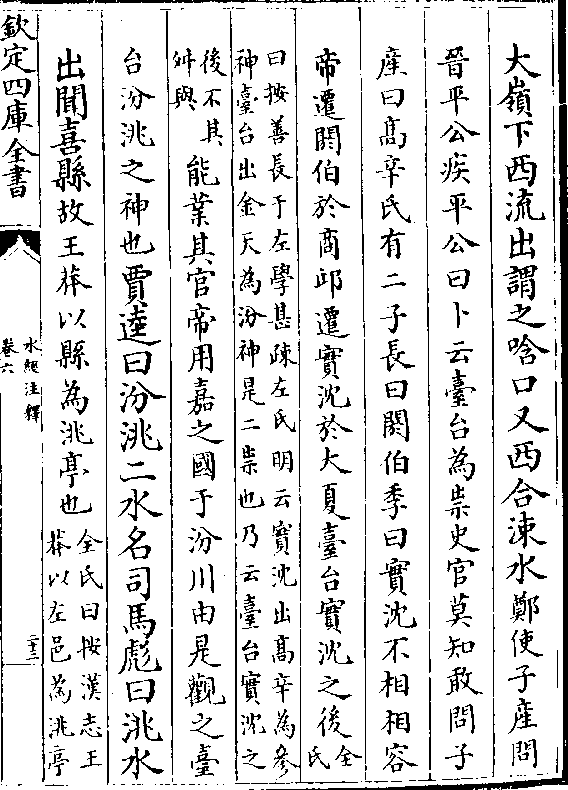 大嶺下西流出謂之唅口又西合涑水鄭使子產問
晉平公疾平公曰卜云臺台為祟史官莫知敢問子
產曰高辛氏有二子長曰閼伯季曰實沈不相容
帝遷閼伯於商邱遷實沈於大夏臺台實沈之後全氏
曰按善長于左學甚疎左氏明云實沈出高辛為參
神臺台出金天為汾神是二祟也乃云臺台實沈之
後不其
舛與
能業其官帝用嘉之國于汾川由是觀之臺
台汾洮之神也賈逵曰汾洮二水名司馬彪曰洮水
出聞喜縣故王莽以縣為洮亭也
全氏曰按漢志王
莽以左邑為洮亭
欽定四庫全書
水經注釋
卷六
二十三